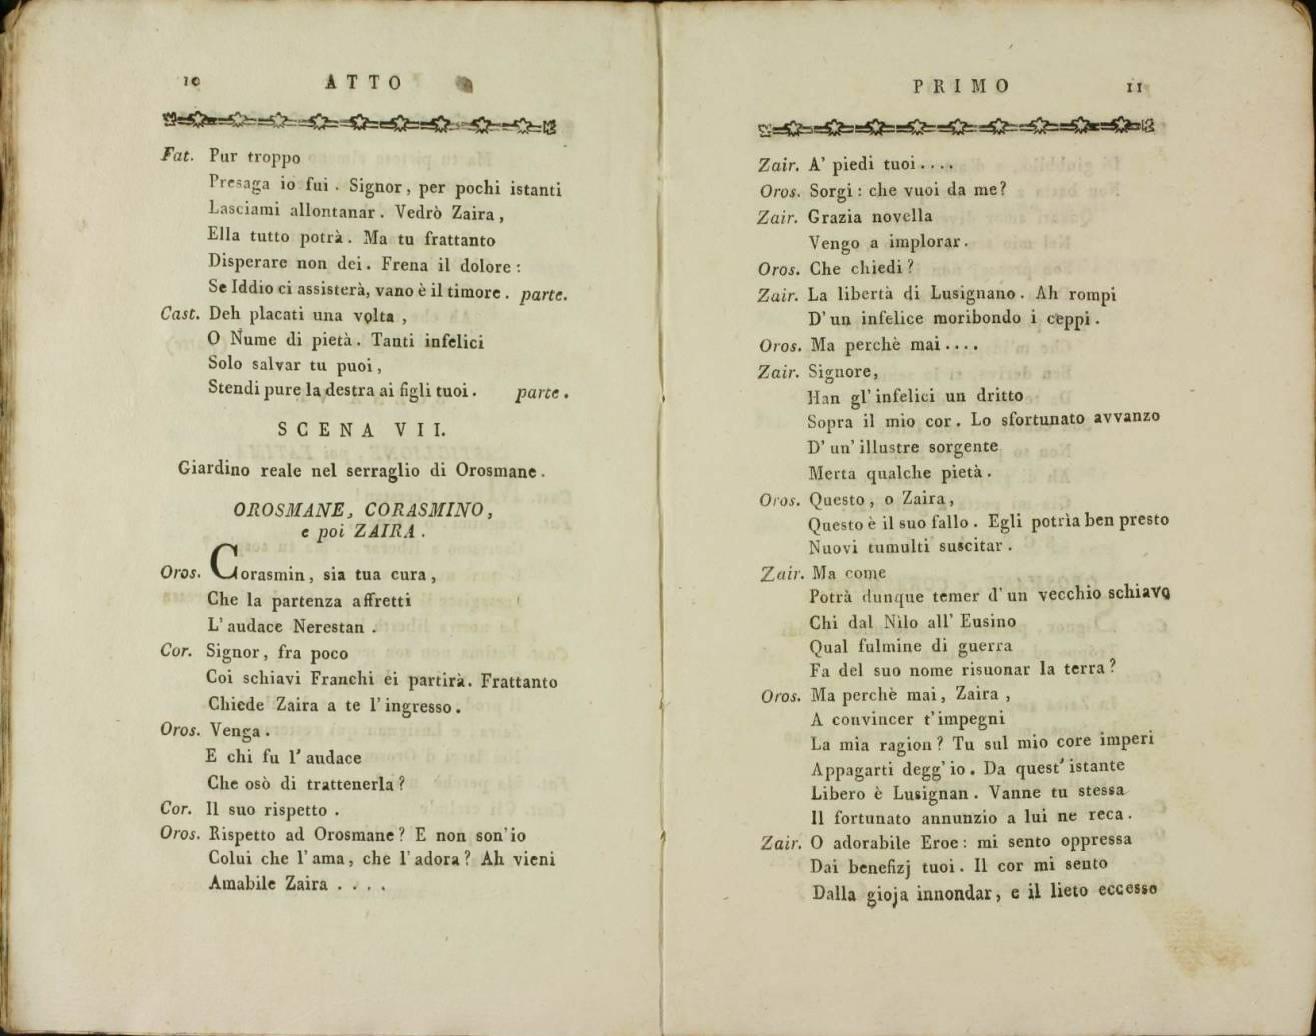 10 ATTO
Fat. Pur troppo
Presaga io fui . Signor, per pochi istanti
Lasciami allontanar . Vedrò Zaira ,
Ella tutto potrà . Ma tu frattanto
Disperare non dei . Frena il dolore :
Se Iddio ci assisterà, vano è il timore . parte.
Cast. Deh placati una volta ,
O Nume di pietà . Tanti infelici
Solo salvar tu puoi ,
Stendi pure la destra ai figli tuoi . parte .
SCENA VII.
Giardino reale nel serraglio di Orosmane .
OROSMANE, CORASMINO,
e poi ZAIRA .
Oros. Corasmin, sia tua cura ,
Che la partenza affretti
L' audace Nerestan .
Cor. Signor, fra poco
Coi schiavi Franchi ei partirà. Frattanto
Chiede Zaira a te l' ingresso .
Oros. Venga .
E chi fu l' audace
Che osò di trattenerla ?
Cor. Il suo rispetto .
Oros. Rispetto ad Orosmane ? E non son' io
Colui che l' ama, che l' adora ? Ah vieni
Amabile Zaira . . . .
PRIMO 11
Zair. A' piedi tuoi . . . .
Oros. Sorgi : che vuoi da me ?
Zair. Grazia novella
Vengo a implorar .
Oros. Che chiedi ?
Zair. La libertà di Lusignano . Ah rompi
D' un infelice moribondo i ceppi .
Oros. Ma perchè mai . . . .
Zair. Signore,
Han gl' infelici un dritto
Sopra il mio cor . Lo sfortunato avvanzo
D' un' illustre sorgente
Merta qualche pietà .
Oros. Questo , o Zaira ,
Questo è il suo fallo . Egli potrìa ben presto
Nuovi tumulti suscitar .
Zair. Ma come
Potrà dunque temer d' un vecchio schiavo
Chi dal Nilo all' Eusino
Qual fulmine di guerra
Fa del suo nome risuonar la terra ?
Oros. Ma perchè mai , Zaira ,
A convincer t' impegni
La mia ragion ? Tu sul mio core imperi
Appagarti degg' io . Da quest' istante
Libero è Lusignan . Vanne tu stessa
Il fortunato annunzio a lui ne reca .
Zair. O adorabile Eroe : mi sento oppressa
Dai benefizj tuoi . Il cor mi sento
Dalla gioja innondar, e il lieto eccesso